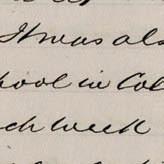 It was als
hool in Col
ch week